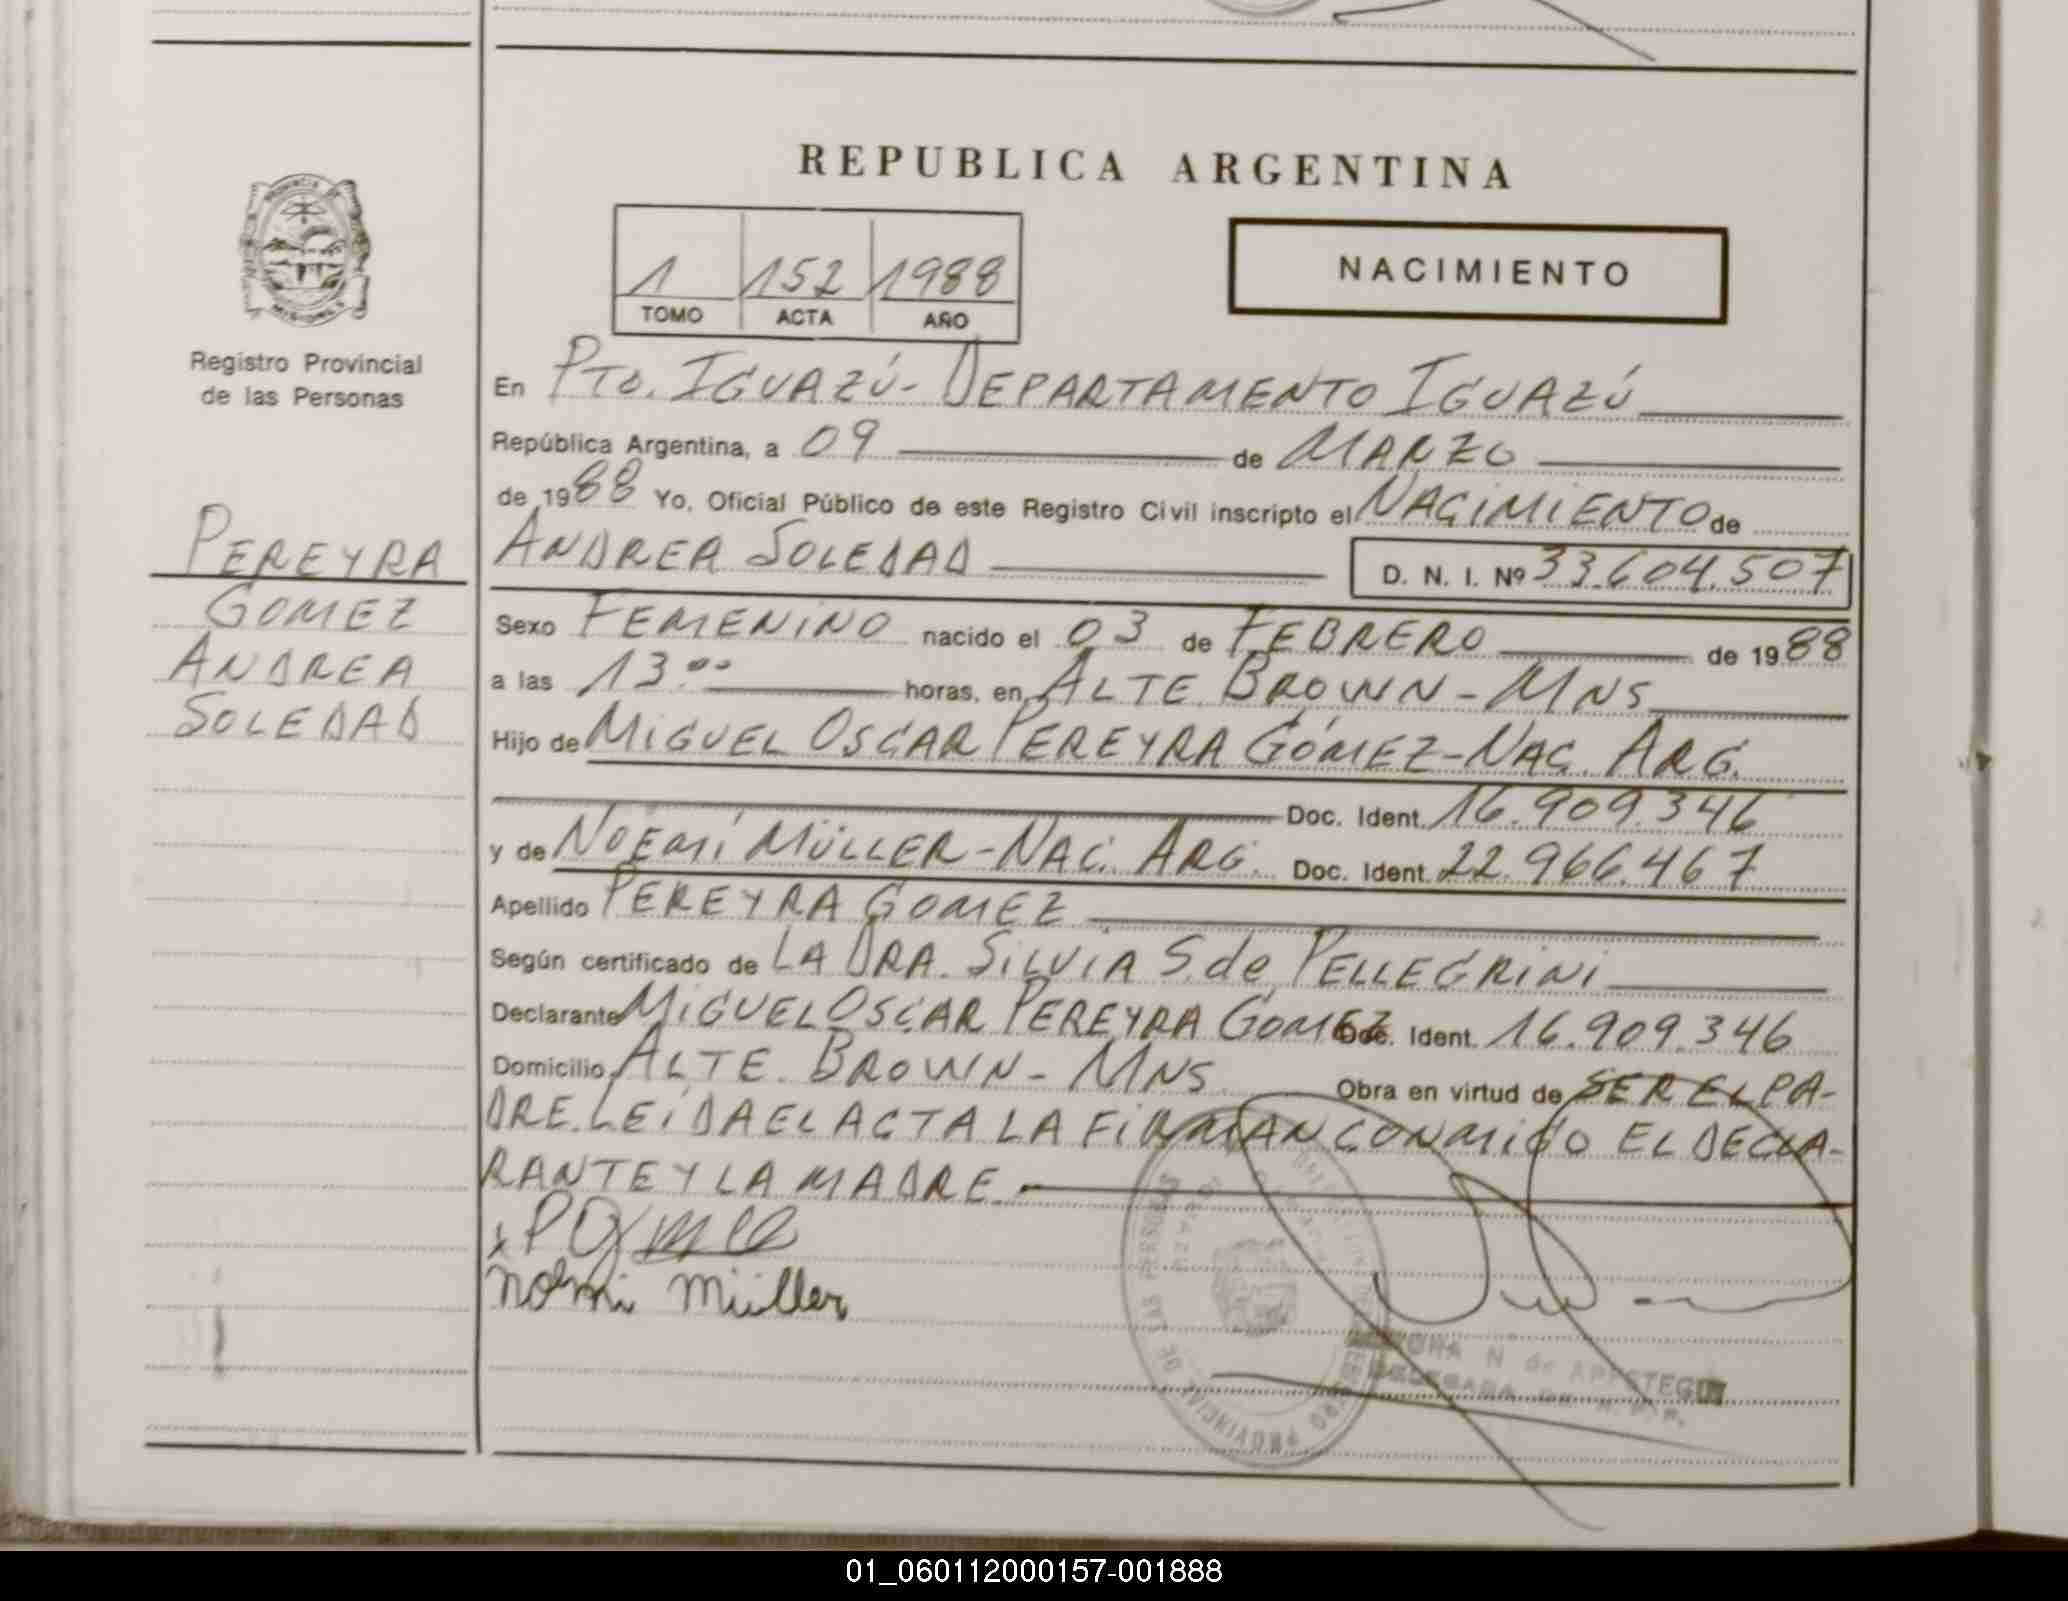 REPUBLICA ARGENTINA
1 152 1988
TOMO ACTA AÑO
NACIMIENTO
Registro Provincial
de las Personas
PEREYRA
GOMEZ
ANDREA
SOLEDAD
En PTO. IGUAZÚ - DEPARTAMENTO IGUAZÚ
República Argentina, a 09 de MARZO
de 1988 Yo, Oficial Público de este Registro Civil inscripto el NACIMIENTO de
ANDREA SOLEDAD D. N. I. Nº 33.604.507
Sexo FEMENINO nacido el 03 de FEBRERO de 1988
a las 13.00 horas, en ALTE. BROWN - MNS
Hijo de MIGUEL OSCAR PEREYRA GÓMEZ - NAC. ARG.
Doc. Ident. 16.909.346
y de NOEMÍ MÜLLER - NAC. ARG. Doc. Ident. 22.966.467
Apellido PEREYRA GOMEZ
Según certificado de LA DRA. SILVIA S. de PELLEGRINI
Declarante MIGUEL OSCAR PEREYRA GOMEZ Doc. Ident. 16.909.346
Domicilio ALTE. BROWN - MNS Obra en virtud de SER EL PA-
DRE. LEÍDA EL ACTA LA FIRMAN CONMIGO EL DECLA-
RANTE Y LA MADRE.
Noemi Müller
REGISTRO PROVINCIAL DE LAS PERSONAS
DELEGADA
01_060112000157-001888